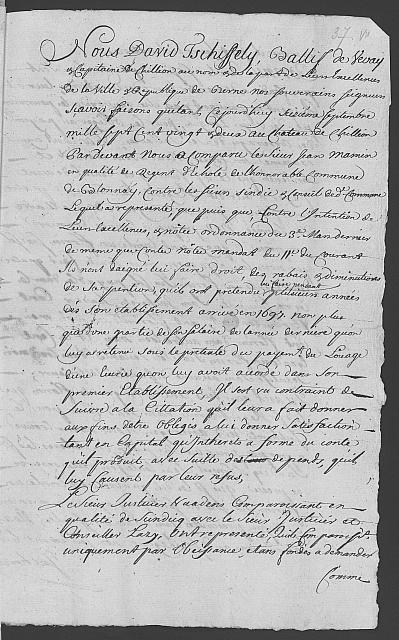 Nous David Tschiffely, Ballif de Vevay
& Capitaine de Chillion au nom & de la part de Leurs Excellences
de la Ville & Republique de Berne nos souverains seigneurs
scavoir faisons qu'estant Cejourdhuy septembre
mille sept Cent vingt & deux au Chateau de Chillion
Pardevant Nous a Comparu le sieur Jean Mamin
en qualité de Regent d'Echole de l'honnorable Commune
de Blonnay, Contre les sieurs sindic & Conseil de d.e Commune
Lequel a representé, que puis que Contre l'Intention de
Leurs Excellences, & nôtre ordonnance du 3.e Mars dernier
de meme que Contre nôtre mandat du 11.e du Courant
Ils n'ont daigné lui faire droit, des rabais & diminutions
de sa pention, qu'ils ont pretendu lui faire pendant plusieurs années
dès son etablissement arrivé en 1697. non plus
que d'une partie de son salaire de l'année derniere qu'on
luy a retenu sous le pretexte du payem.t du Louage
d'une Curie qu'on luy avoit accordé dans son
premier Etablissement, Il s'est vu contraint de
suivre a la Citation qu'il leur a fait donner
aux fins d'etre obligés a lui donner satisfaction
tant en Capital qu'Intherets a forme du conte
qu'il produit, avec suitte de depends, qu'ils
luy Causent par leur refus,
Le sieur Justicier Comparoissant en
qualité de sindicq avec le sieur Justicier et
Conseiller Lazy, Ont representé, qu'ils Comparoissent
uniquement par Obeissance, etans fondés a demander
Comme